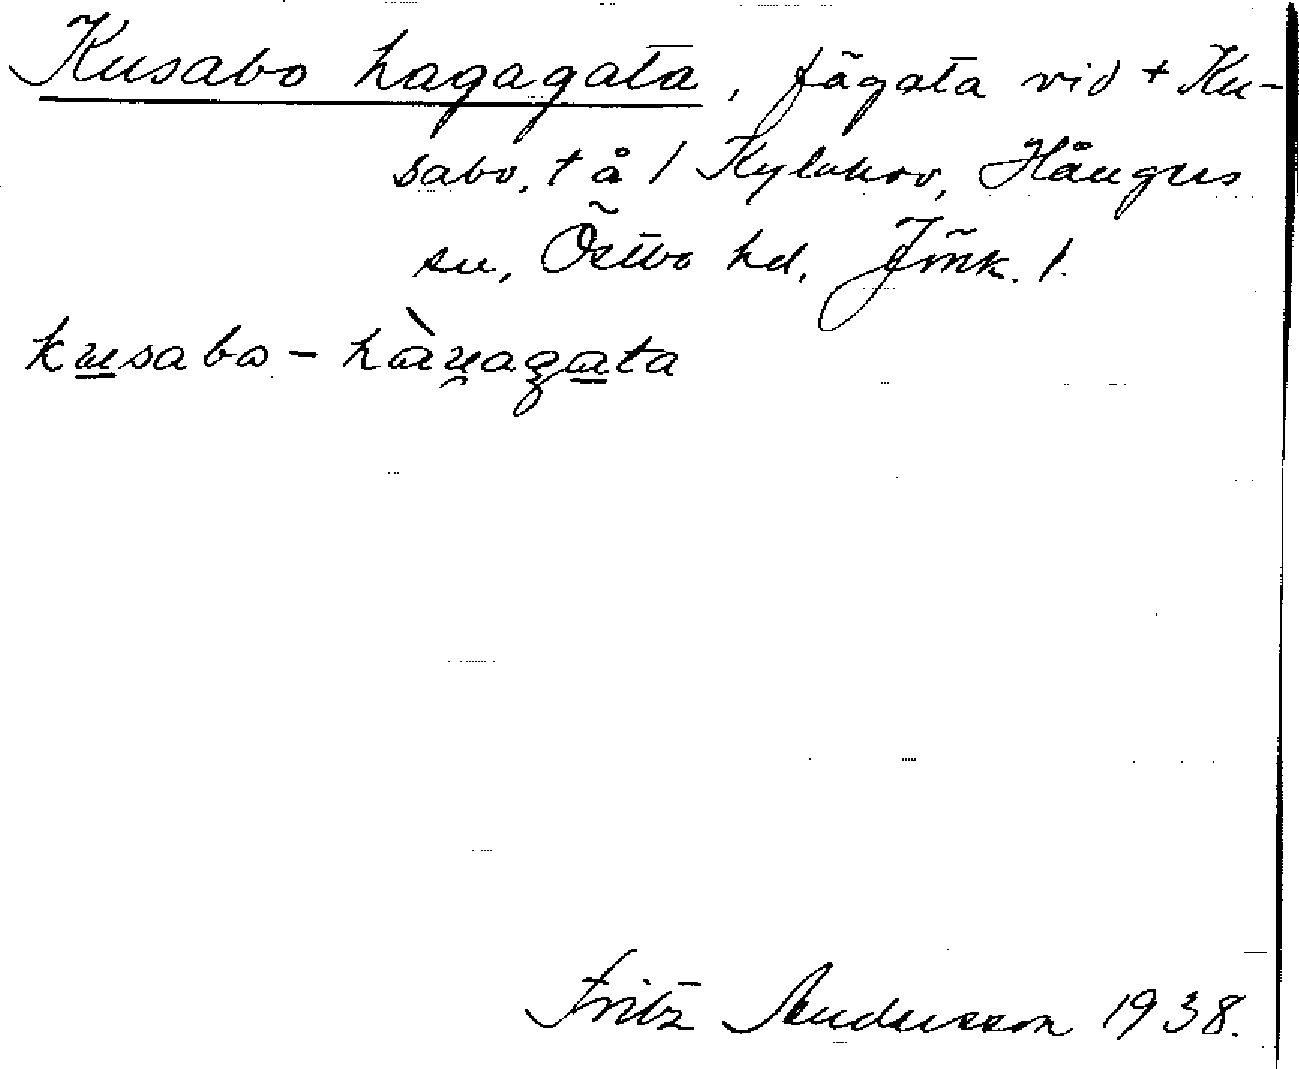 Kusabo hagagata, fägata vid + Ku-
sabo, + å 1 Kylahov, Hångers
sn, Östbo hd. Jönk. l.
kusabo - hàuagata
Fritz Andersson 1938.